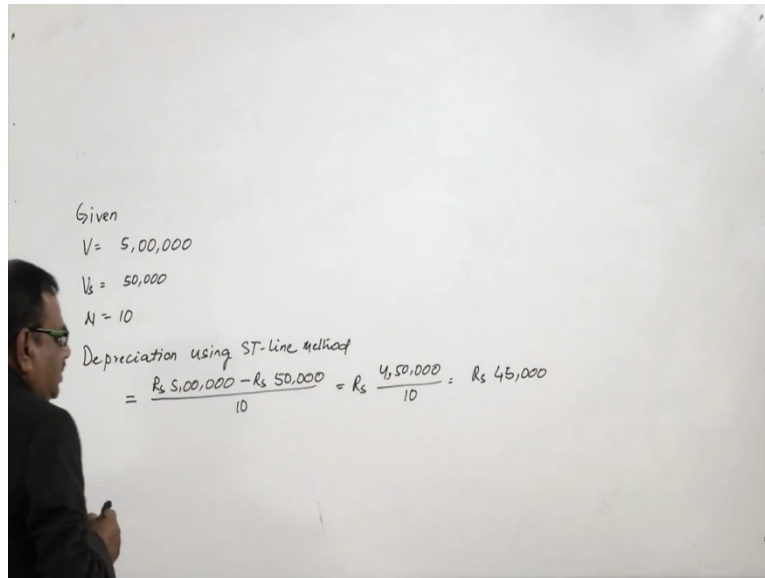 Given
V= 5,00,000
Vs = 50,000
N = 10
Depreciation using ST-Line Method
= Rs 5,00,000 - Rs 50,000 / 10 = Rs 4,50,000 / 10 = Rs 45,000